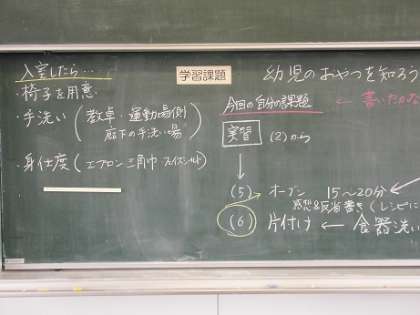 入室したら…
・椅子を用意
・手洗い（教卓・運動場側
廊下の手洗い場）
・身仕度（エプロン 三角巾
学習課題
幼児のおやつを知ろう
今回の自分の課題
← 書いたかな
実習 (2)から
(5) オーブン 15〜20分
感想&反省書き（レシピに
(6) 片付け ← 食器洗い